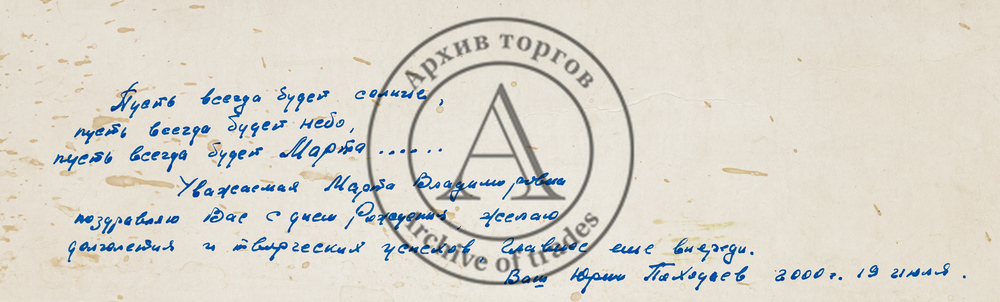 Архив торгов
Пусть всегда будет солнце,
пусть всегда будет небо,
пусть всегда будет Марта......
Уважаемая Марта Владимировна
поздравляю Вас с днем Рождения, желаю
долголетия и творческих успехов. Главное еще впереди.
Ваш Юрий 2000 г. 19 июля.
Archive of trades